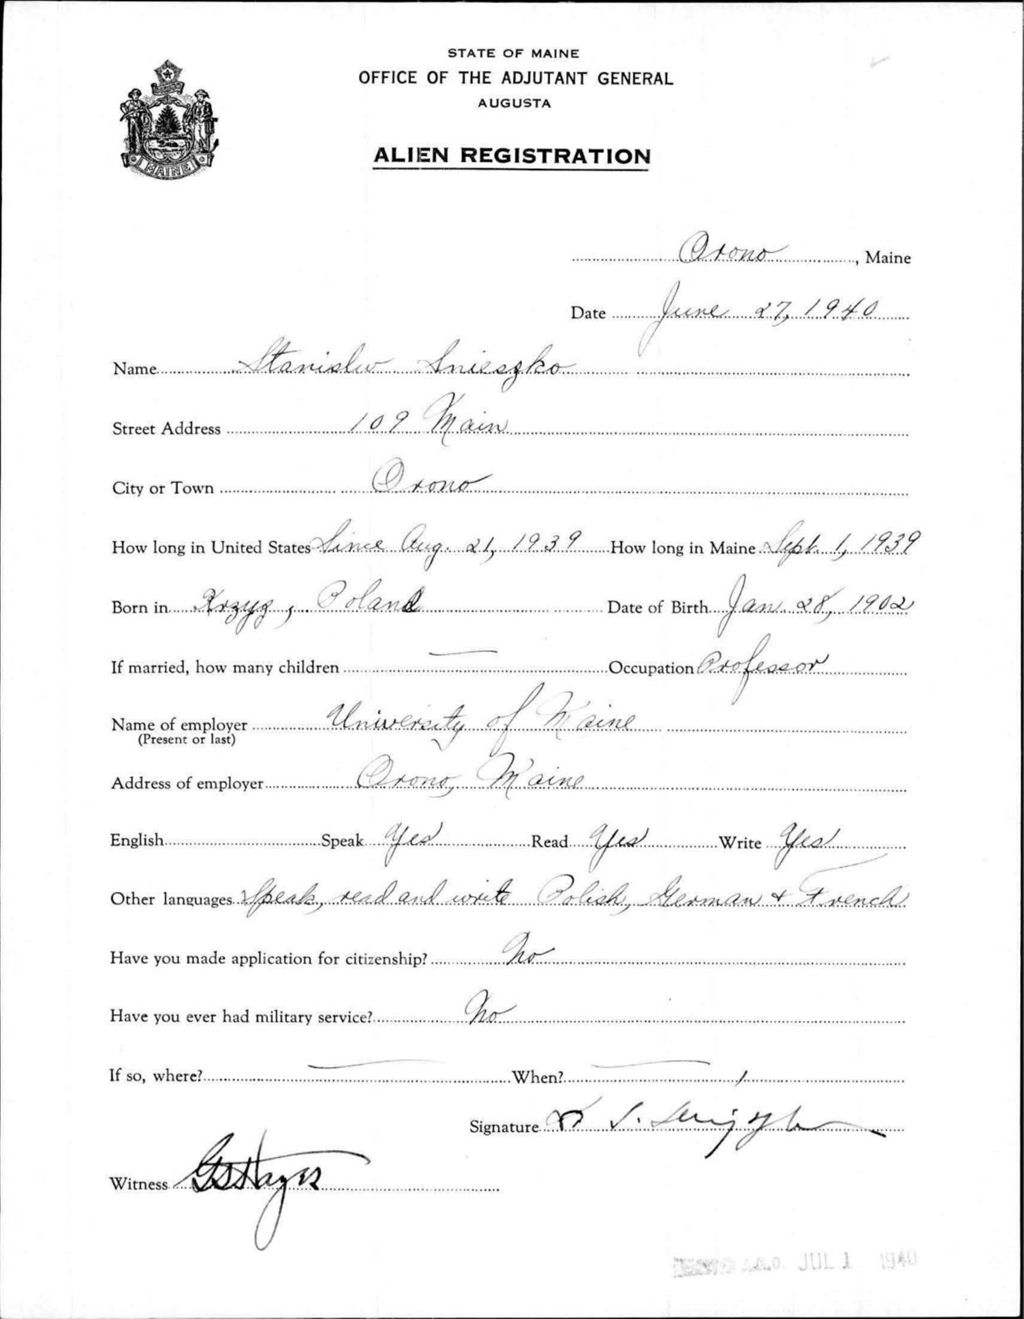 STATE OF MAINE
OFFICE OF THE ADJUTANT GENERAL
AUGUSTA
ALIEN REGISTRATION
MAINE
Orono, Maine
Date June 27, 1940
Name Stanislw Snieszko
Street Address 109 Main
City or Town Orono
How long in United States Since Aug. 21, 1939 How long in Maine Sept. 1, 1939
Born in Krzyz, Poland Date of Birth Jan. 28, 1902
If married, how many children — Occupation Professor
Name of employer University of Maine
(Present or last)
Address of employer Orono, Maine
English Speak Yes Read Yes Write Yes
Other languages Speak, read and write Polish, German + French
Have you made application for citizenship? No
Have you ever had military service? No
If so, where? — When? —
Signature S.
Witness G S Hayes
A.G.O. JUL 1 1940